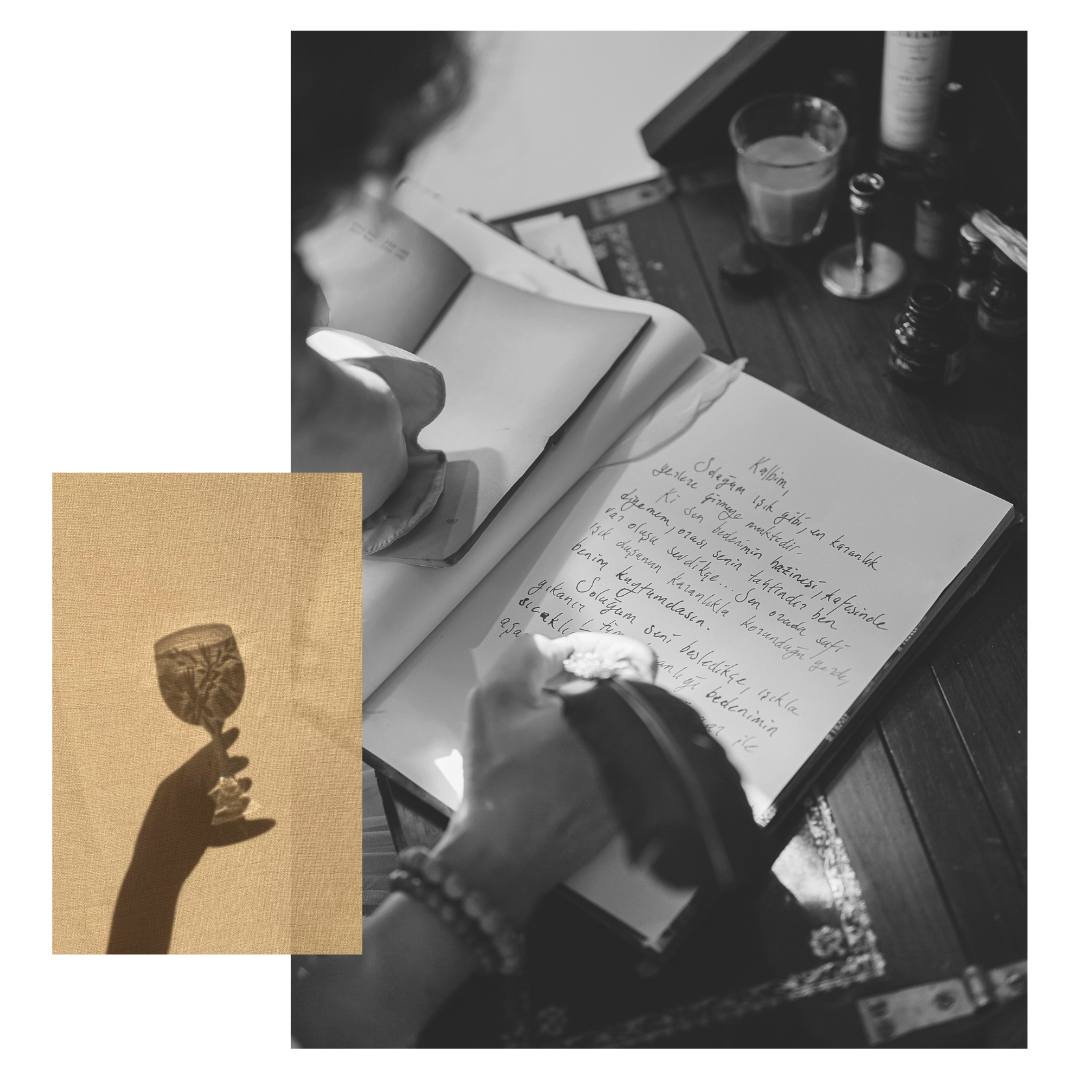 Kalbim,
Soluğum ışık gibi, en karanlık
yerlere girmeye muktedir.
Ki sen bedenimin hazinesi, kafesinde
diyemem, orası senin tahtındır ben
var oluşu sevdikçe... Sen orada safi
ışık duşunun karanlıkla korunduğu yerde,
benim kuytumdasın.
Soluğum seni besledikçe, ışıkla
yıkanır tüm
sıcaklı bedenimin
aşa ile